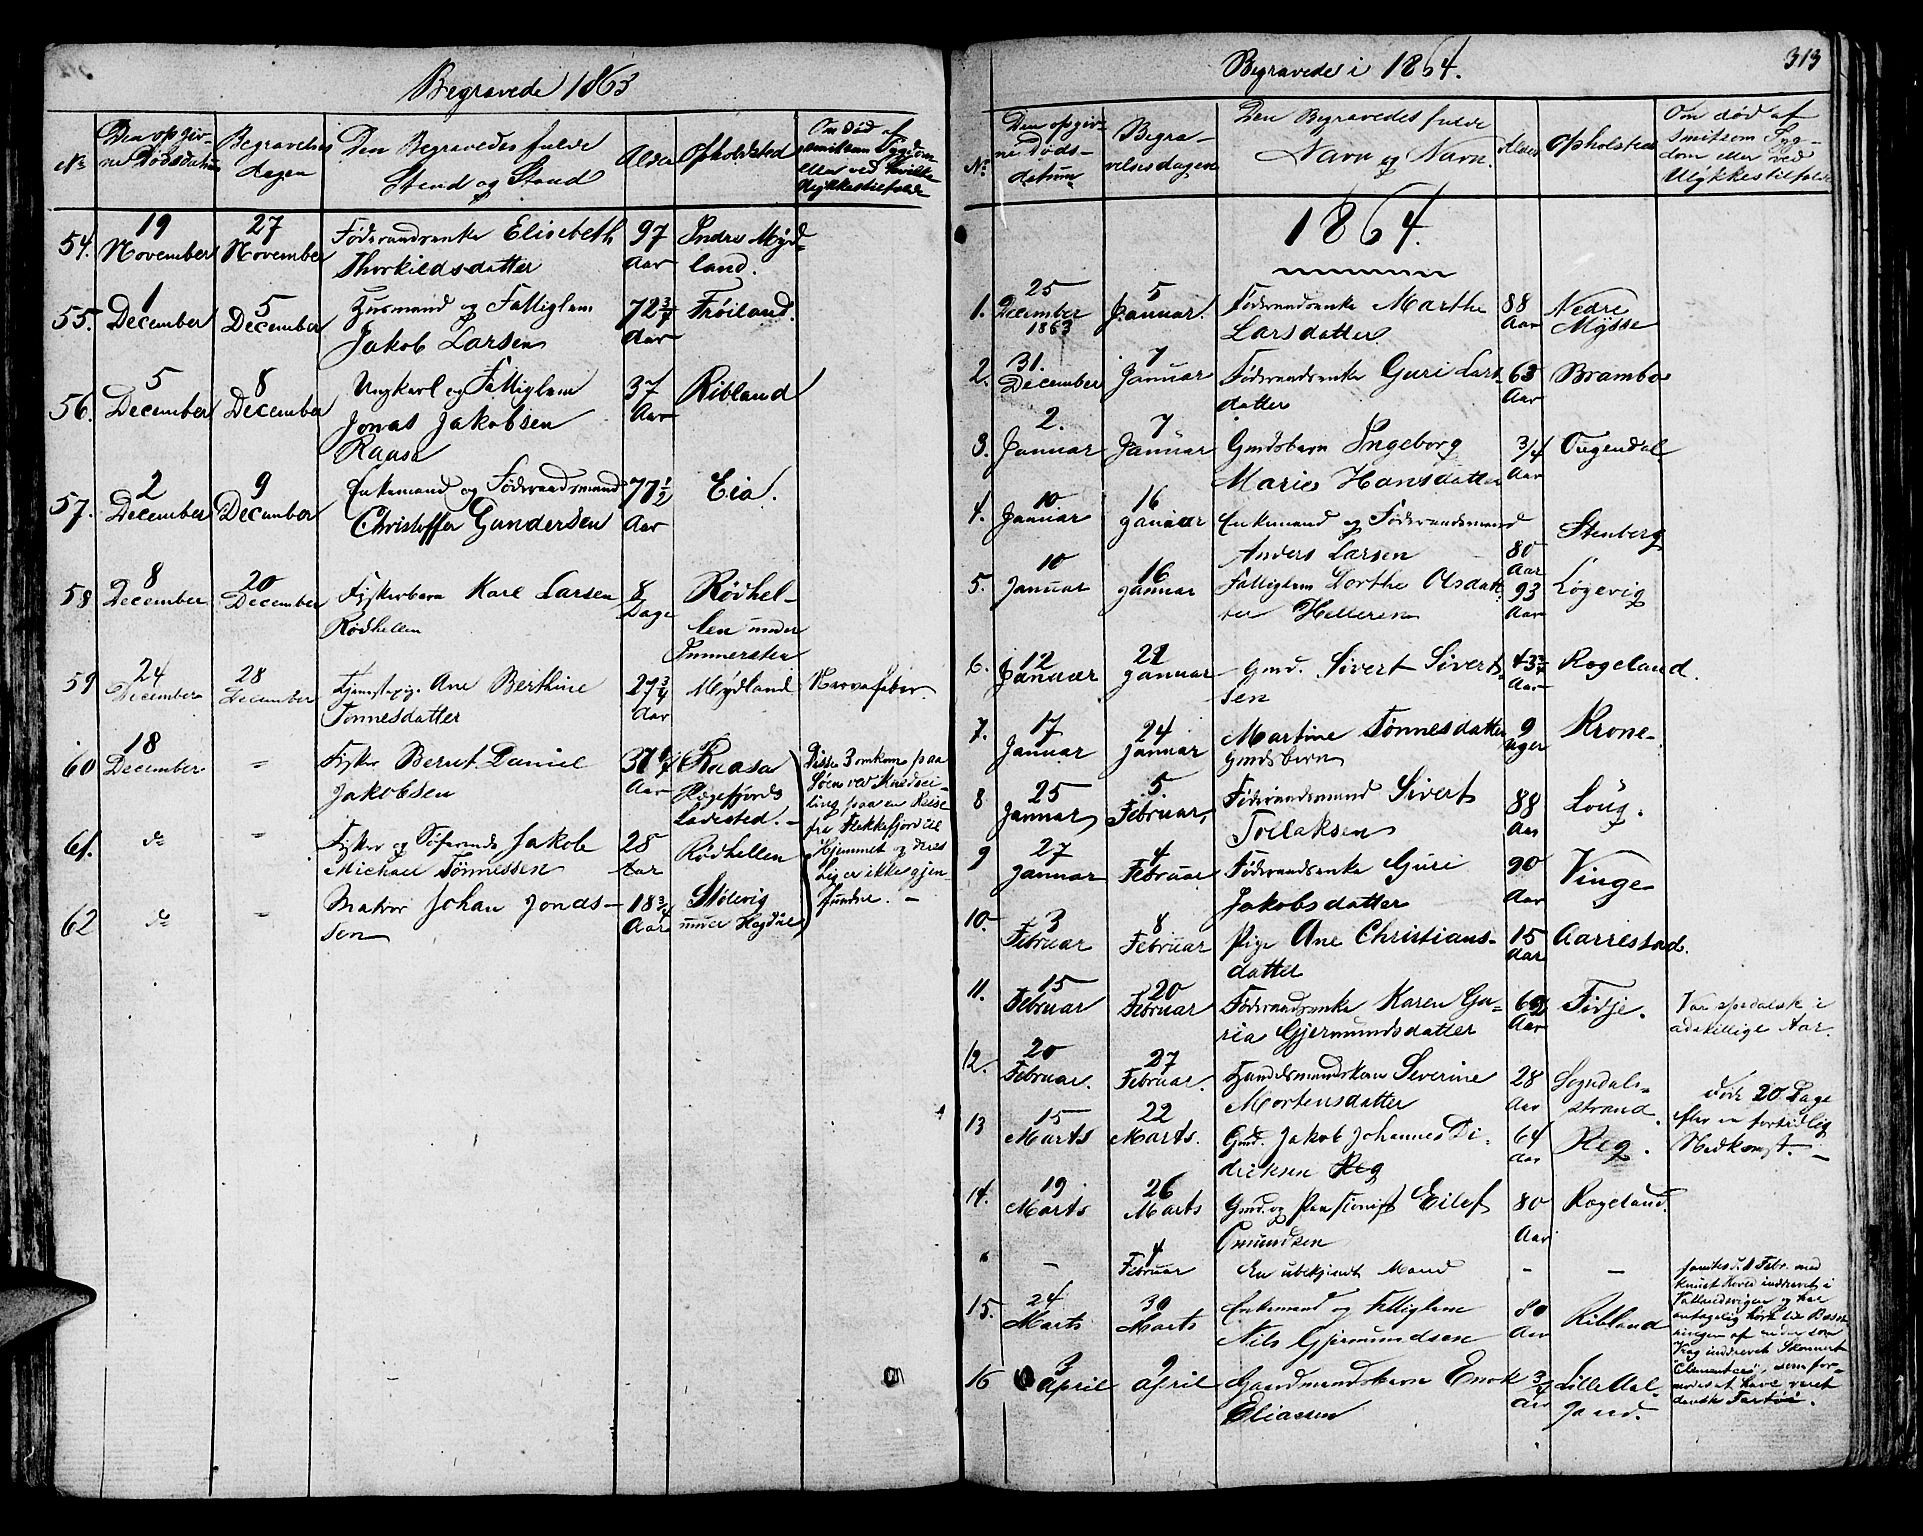 Begravede 1863
No
Den opgiv-
ne Dødsdatum
Begravelses
dagen
Den Begravedes fulde
Stand og Stand
Alder
Opholdsted
Om død af
smitsom Sygdom
eller ved
Ulykkestilfælde
54.
19
November
27
November
Føderaadsenke Elisebeth
Thorkildsdatter
97
Aar
Indre Myd-
land.
55.
1
December
5
December
Huusmand og Fattiglem
Jakob Larsen
72 3/4
Aar
Frøiland.
56.
5
December
8
December
Ungkarl og Fattiglem
Jonas Jakobsen
Raasa
37
Aar
Ribland
57.
2
December
9
December
Enkemand og Føderaadsmand
Christoffer Gundersen
77 1/2
Aar
Eia.
58
8
December
20
December
Fiskerbarn Karl Larsen
Rødhellen
8
Dage
Rødhel-
len under
59
24
December
28
December
Tjenestepige Ane Berthine
Tønnesdatter
27 3/4
Aar
Mydland
Nervefeber.
60
18
December
-
Fisker Bernt Daniel
Jakobsen
Aar
Raasa
Rægefjords
Ladested. -
Disse 3 omkom paa
Søen ved Kuldsei-
ling paa en Reise
fra Flekkefjord til
Hjemmet og deres
Lig er ikke gjen-
fundne. -
61.
do
-
Fisker og Søfarende Jakob
Michael Tønnessen
28
Aar
Rødhellen
62
do
-
Matros Johan Jonas-
sen
18 3/4
Aar
Stølevig
under
Begravede i 1864.
313
No
Den opgiv-
ne Døds-
datum
Begra-
velsesdagen
Den Begravedes fulde
Navn og Navn.
Alder
Opholsted
Om død af
smitsom Syg-
dom eller ved
Ulykkestilfælde
1864.
1.
25
December
1863
5
Januar.
Føderaadsenke Marthe
Larsdatter
88
Aar
Nedre
Mysse
2.
31.
December
7
Januar
Føderaadsenke Guri Lars-
datter
63
Aar
Brambo
3.
2.
Januar
7
Januar
Gmdsbarn Ingeborg
Marie Hansdatter
3/4
Aar
4.
10
Januar
16
Januar
Enkemand og Føderaadsmand
Anders Larsen
80
Aar
Stenberg
5.
10
Januar
16
Januar
Fattiglem Dorthe Olsdat-
ter Helleren
93
Aar
Løgevig
6.
12
Januar
21
Januar
Gmd. Sivert Siverts-
sen
Aar
Rægeland.
7.
17
Januar
24
Januar
Martine Tønnesdatter
Gmdsbarn
9
Uger
Krone-
8
25
Januar
5.
Februar,
Føderaadsmand Sivert
Tollaksen
88
Aar
Løug.
9
27
Januar
4
Februar
Føderaadsenke Guri
Jakobsdatter
90
Aar
Vinge
10.
3
Februar
8
Februar
Pige Ane Christians-
datter
15
Aar
Aarrestad.
11.
15
Februar
20
Februar
Føderaadsenke Karen Gu-
ria Gjermundsdatter
Aar
Fidje.
Var spedalsk i
adskillige Aar.
12.
20
Februar.
27
Februar.
Handelsmandskone Severine
Mortensdatter
28
Aar
Sogndals-
strand.
Døde 20 Dage
efter en fortidlig
Nedkomst. -
13
15
Marts
22
Marts.
Gmd. Jakob Johannes Di-
driksen Reg
64
Aar
Reg.
14.
19
Marts
26
Marts
Gmd. og Pensionist Eilef
Omundsen
80
Aar
Rægeland.
-
4
Februar
En ubekjendt Mand
-
-
fandtes d. 1 Febr. med
knust Hoved inddrevet i
antagelig hørt til Besæt-
ningen af
Vrag inddrevet Skonnert
"Clementine", som for-
modes at have været
dansk Fartøi.
15.
24
Marts
30
Marts
Enkemand og Fattiglem
Nils Gjermundsen
80
Aar
Ribland
16
3
April
9
April
Gaardmandsbarn Enok
Eliassen
3/4
Aar
Lille Aal-
gaard.